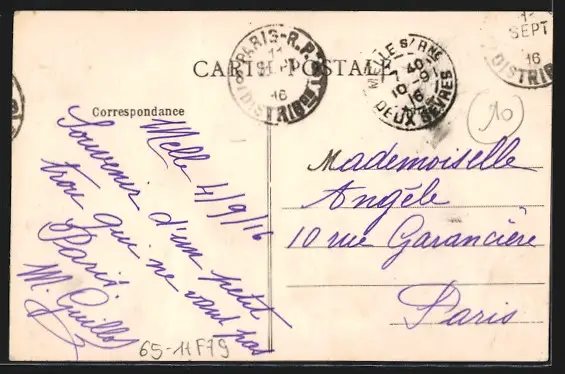 CARTE POSTALE
Correspondance
Melle 4/9/16
Souvenir d'un petit
trou qui ne vaut pas
Paris.
M. Guillot
Mademoiselle
Angèle
10 rue Garancière
Paris
PARIS-R.P.
11
SEPT
16
DISTRIBON
MELLE S/
7 40
10-9
16
DEUX SEVRES
SEPT
16
DISTRIB
10
65-11F79